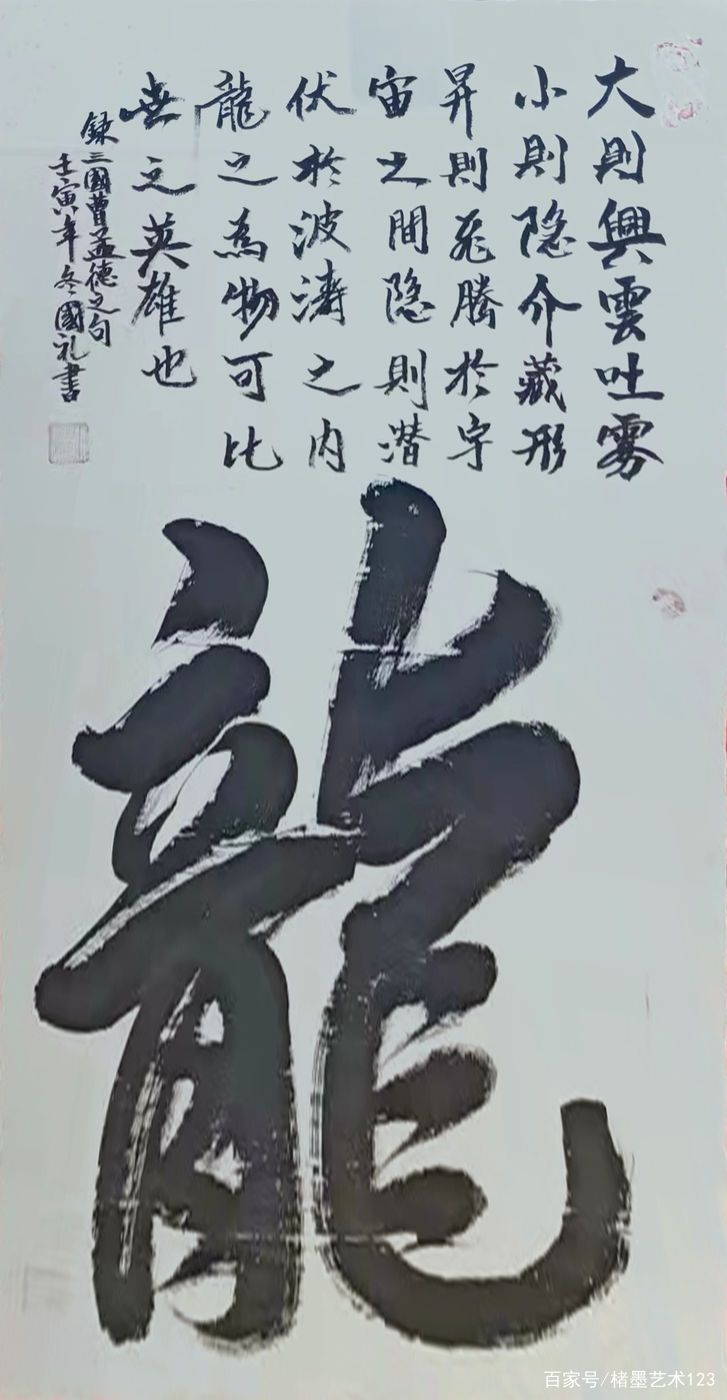 大則興雲吐雾
小則隐介藏形
昇則飛騰於宇
宙之間隐則潜
伏於波濤之内
龍之為物可比
世之英雄也
錄三國曹孟德之句
壬寅年冬國礼書
龍
百家号/楮墨艺术123